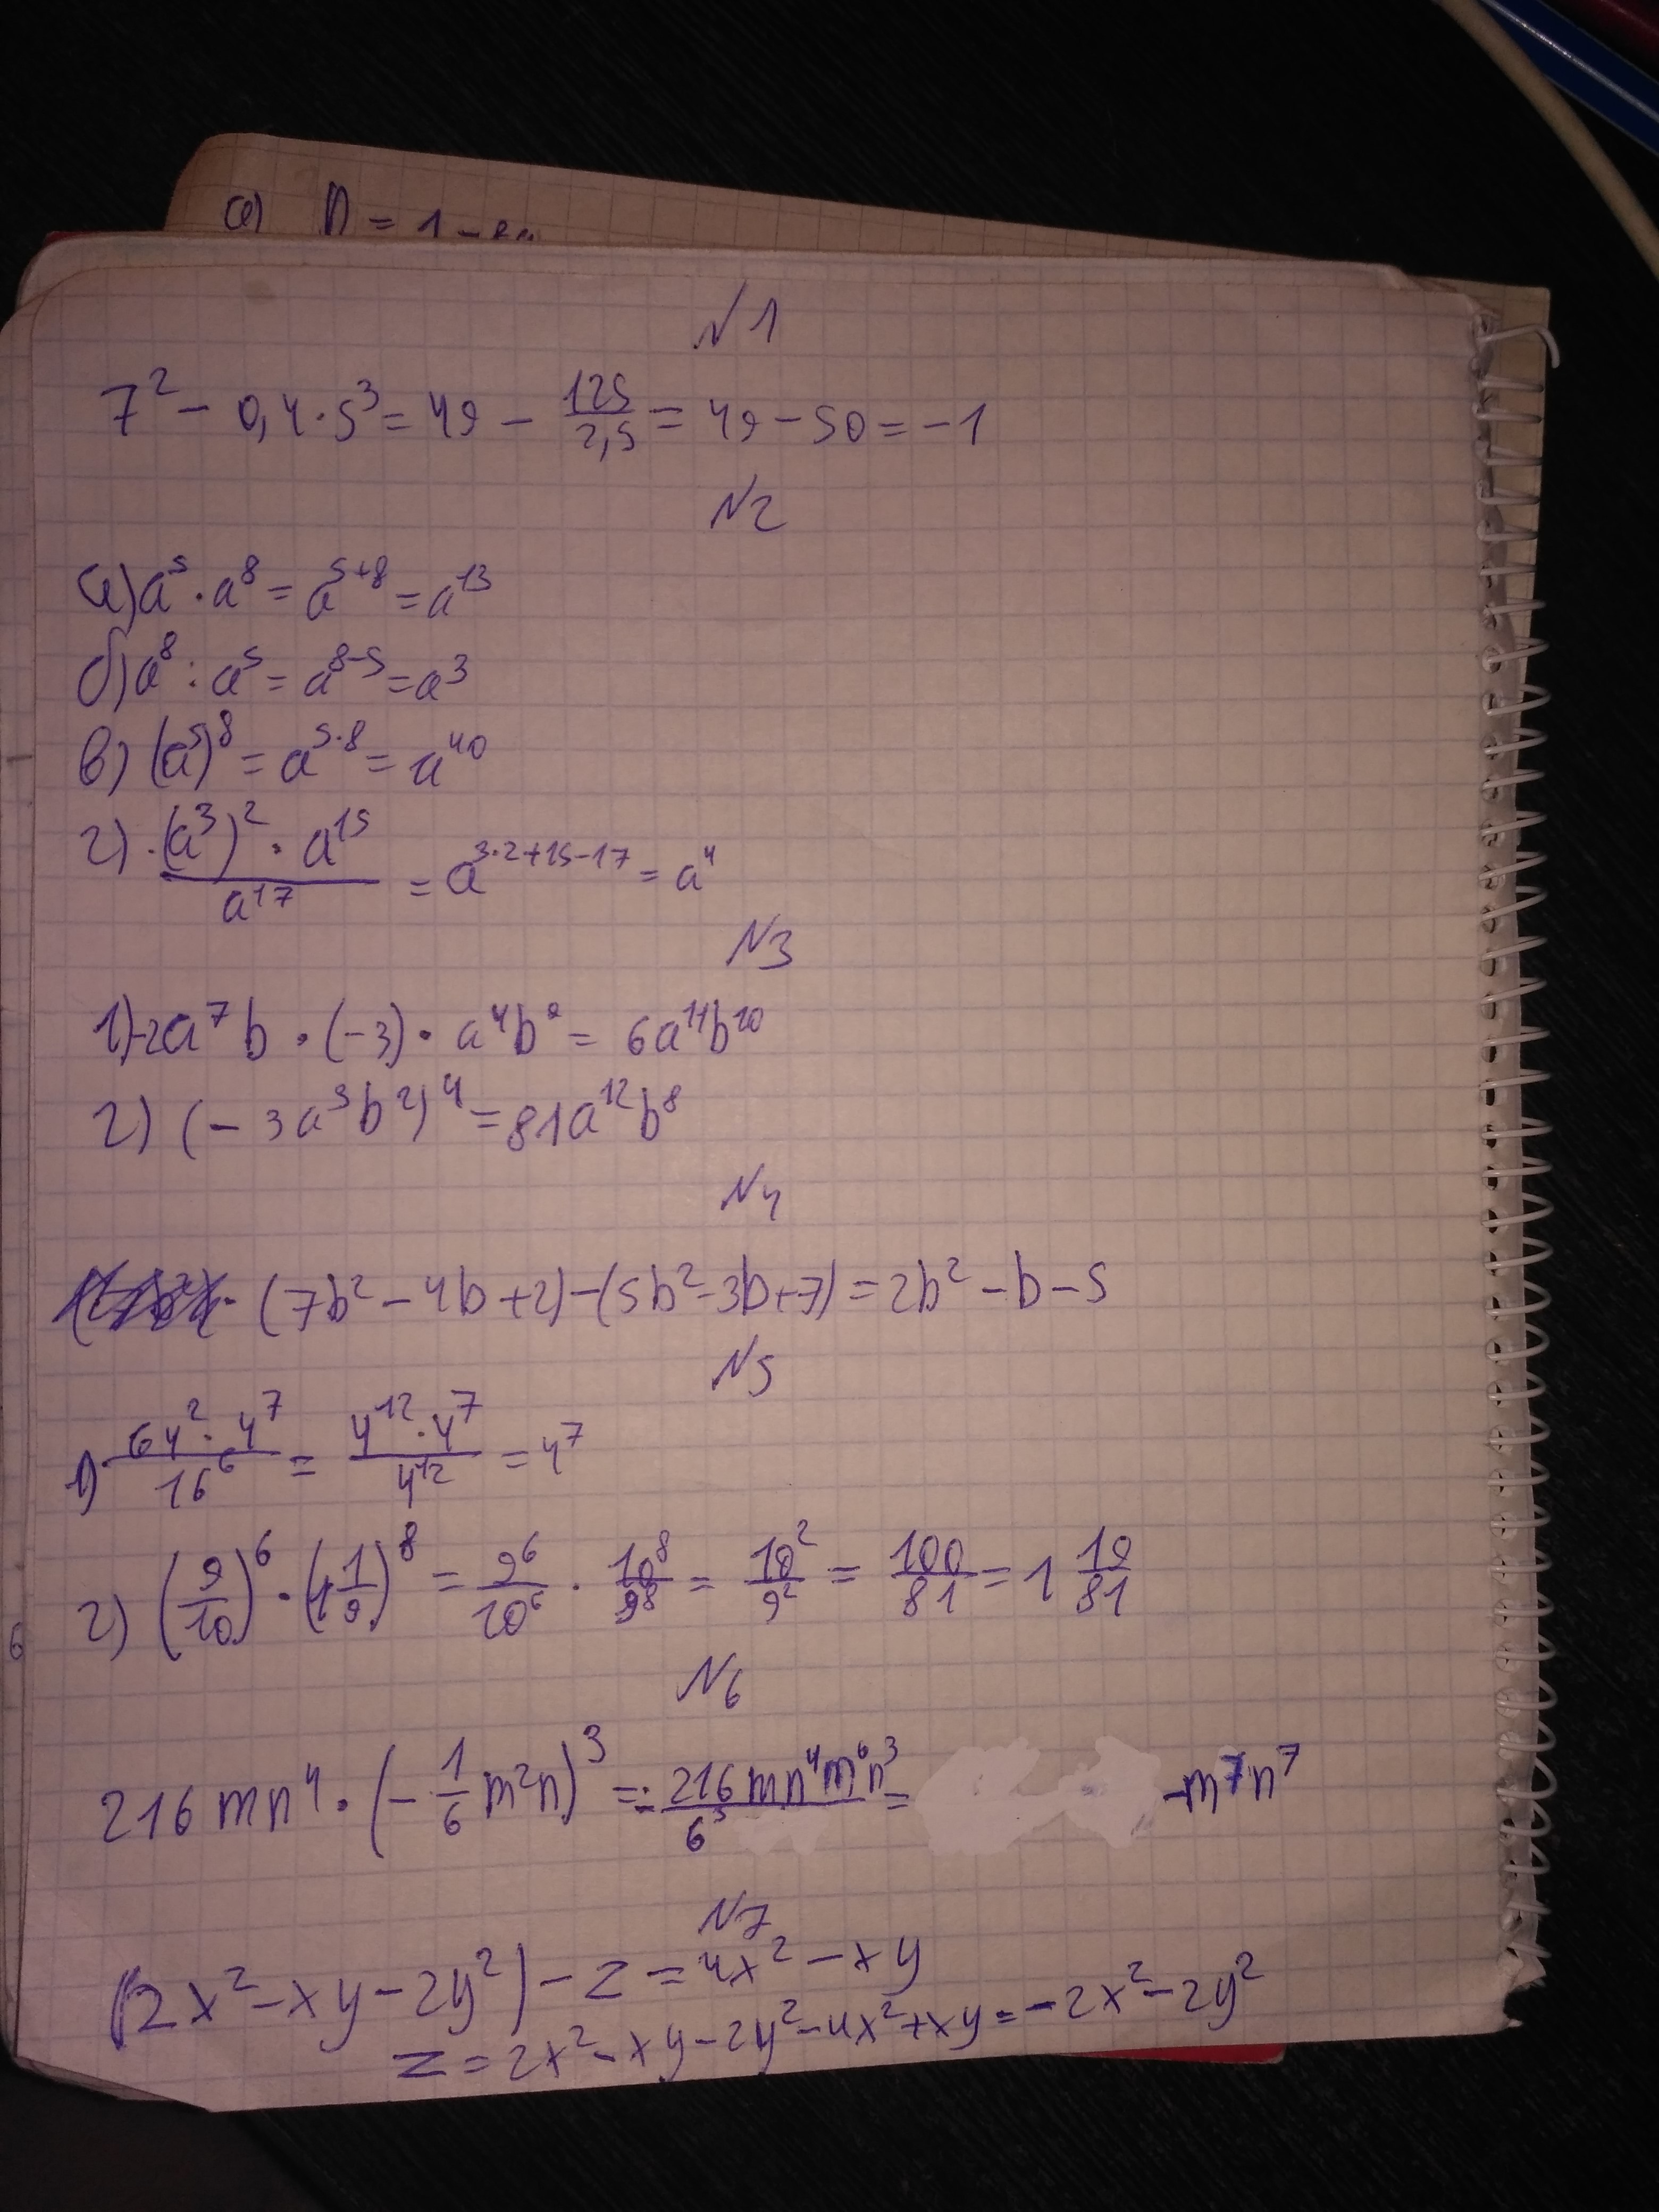 а) D = 1 -
N1
7² - 0,4·5³ = 49 - 125/2,5 = 49 - 50 = -1
N2
а) a⁵ · a⁸ = a⁵⁺⁸ = a¹³
б) a⁸ : a⁵ = a⁸⁻⁵ = a³
в) (a⁵)⁸ = a^(5·8) = a⁴⁰
г) (a³)² · a¹⁵ / a¹⁷ = a^(3·2+15-17) = a⁴
N3
1) -2a⁷b · (-3) · a⁴b⁹ = 6a¹¹b¹⁰
2) (-3a³b²)⁴ = 81a¹²b⁸
N4
(7b² - 4b + 2) - (5b² - 3b + 7) = 2b² - b - 5
N5
1) 64² · 4⁷ / 16⁶ = 4¹² · 4⁷ / 4¹² = 4⁷
2) (9/10)⁶ · (1 1/9)⁸ = 9⁶/10⁶ · 10⁸/9⁸ = 10²/9² = 100/81 = 1 19/81
N6
216 mn⁴ · (- 1/6 m²n)³ = - 216 mn⁴m⁶n³ / 6³ = -m⁷n⁷
N7
(2x² - xy - 2y²) - z = 4x² - xy
z = 2x² - xy - 2y² - 4x² + xy = -2x² - 2y²
6